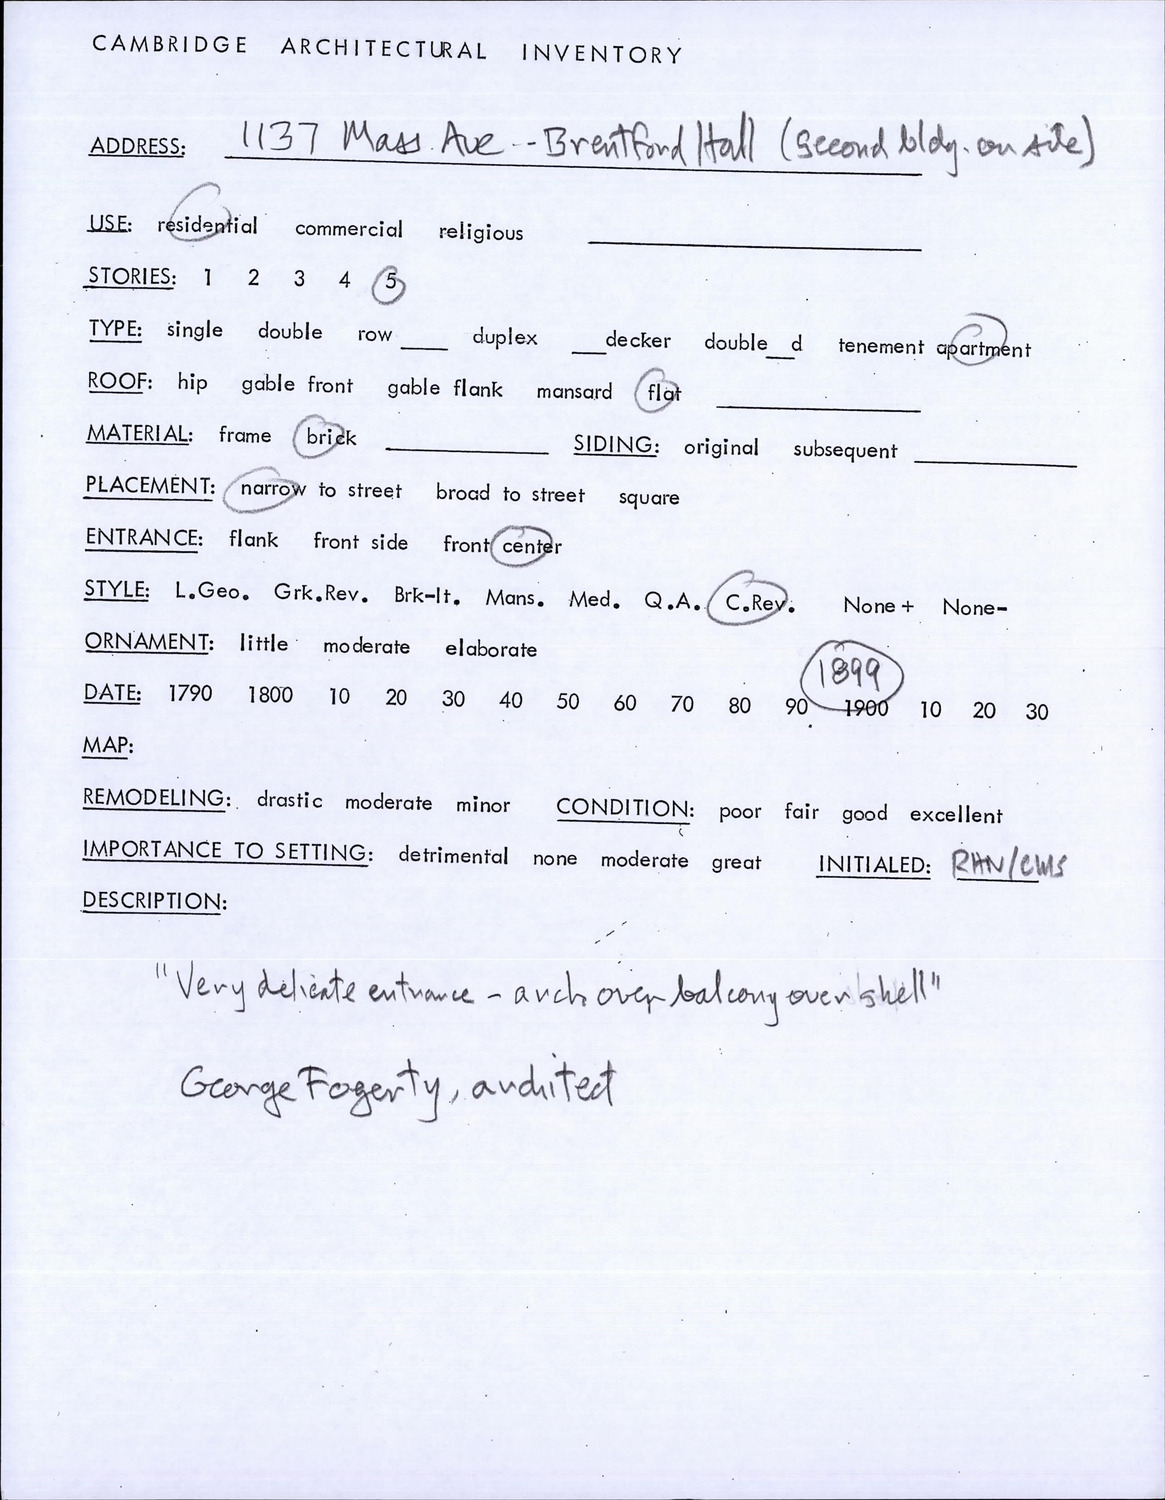 CAMBRIDGE ARCHITECTURAL INVENTORY
ADDRESS: 1137 Mass. Ave -- Brentford Hall (second bldg. on site)
USE: residential commercial religious
STORIES: 1 2 3 4 5
TYPE: single double row ___ duplex ___decker double__d tenement apartment
ROOF: hip gable front gable flank mansard flat
MATERIAL: frame brick SIDING: original subsequent
PLACEMENT: narrow to street broad to street square
ENTRANCE: flank front side front center
STYLE: L.Geo. Grk.Rev. Brk-It. Mans. Med. Q.A. C.Rev. None + None-
ORNAMENT: little moderate elaborate
1899
DATE: 1790 1800 10 20 30 40 50 60 70 80 90 1900 10 20 30
MAP:
REMODELING: drastic moderate minor CONDITION: poor fair good excellent
IMPORTANCE TO SETTING: detrimental none moderate great INITIALED: RHN/CMS
DESCRIPTION:
"Very delicate entrance - arch over balcony over shell"
George Fogerty, architect